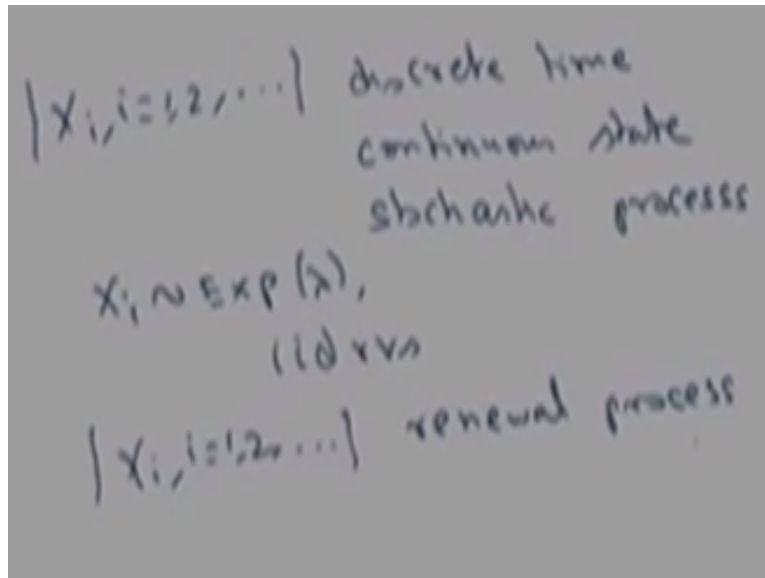 {Xi, i=1,2,...} discrete time
continuous state
stochastic processs
Xi ~ Exp(λ),
iid rvs
{Xi, i=1,2,...} renewal process